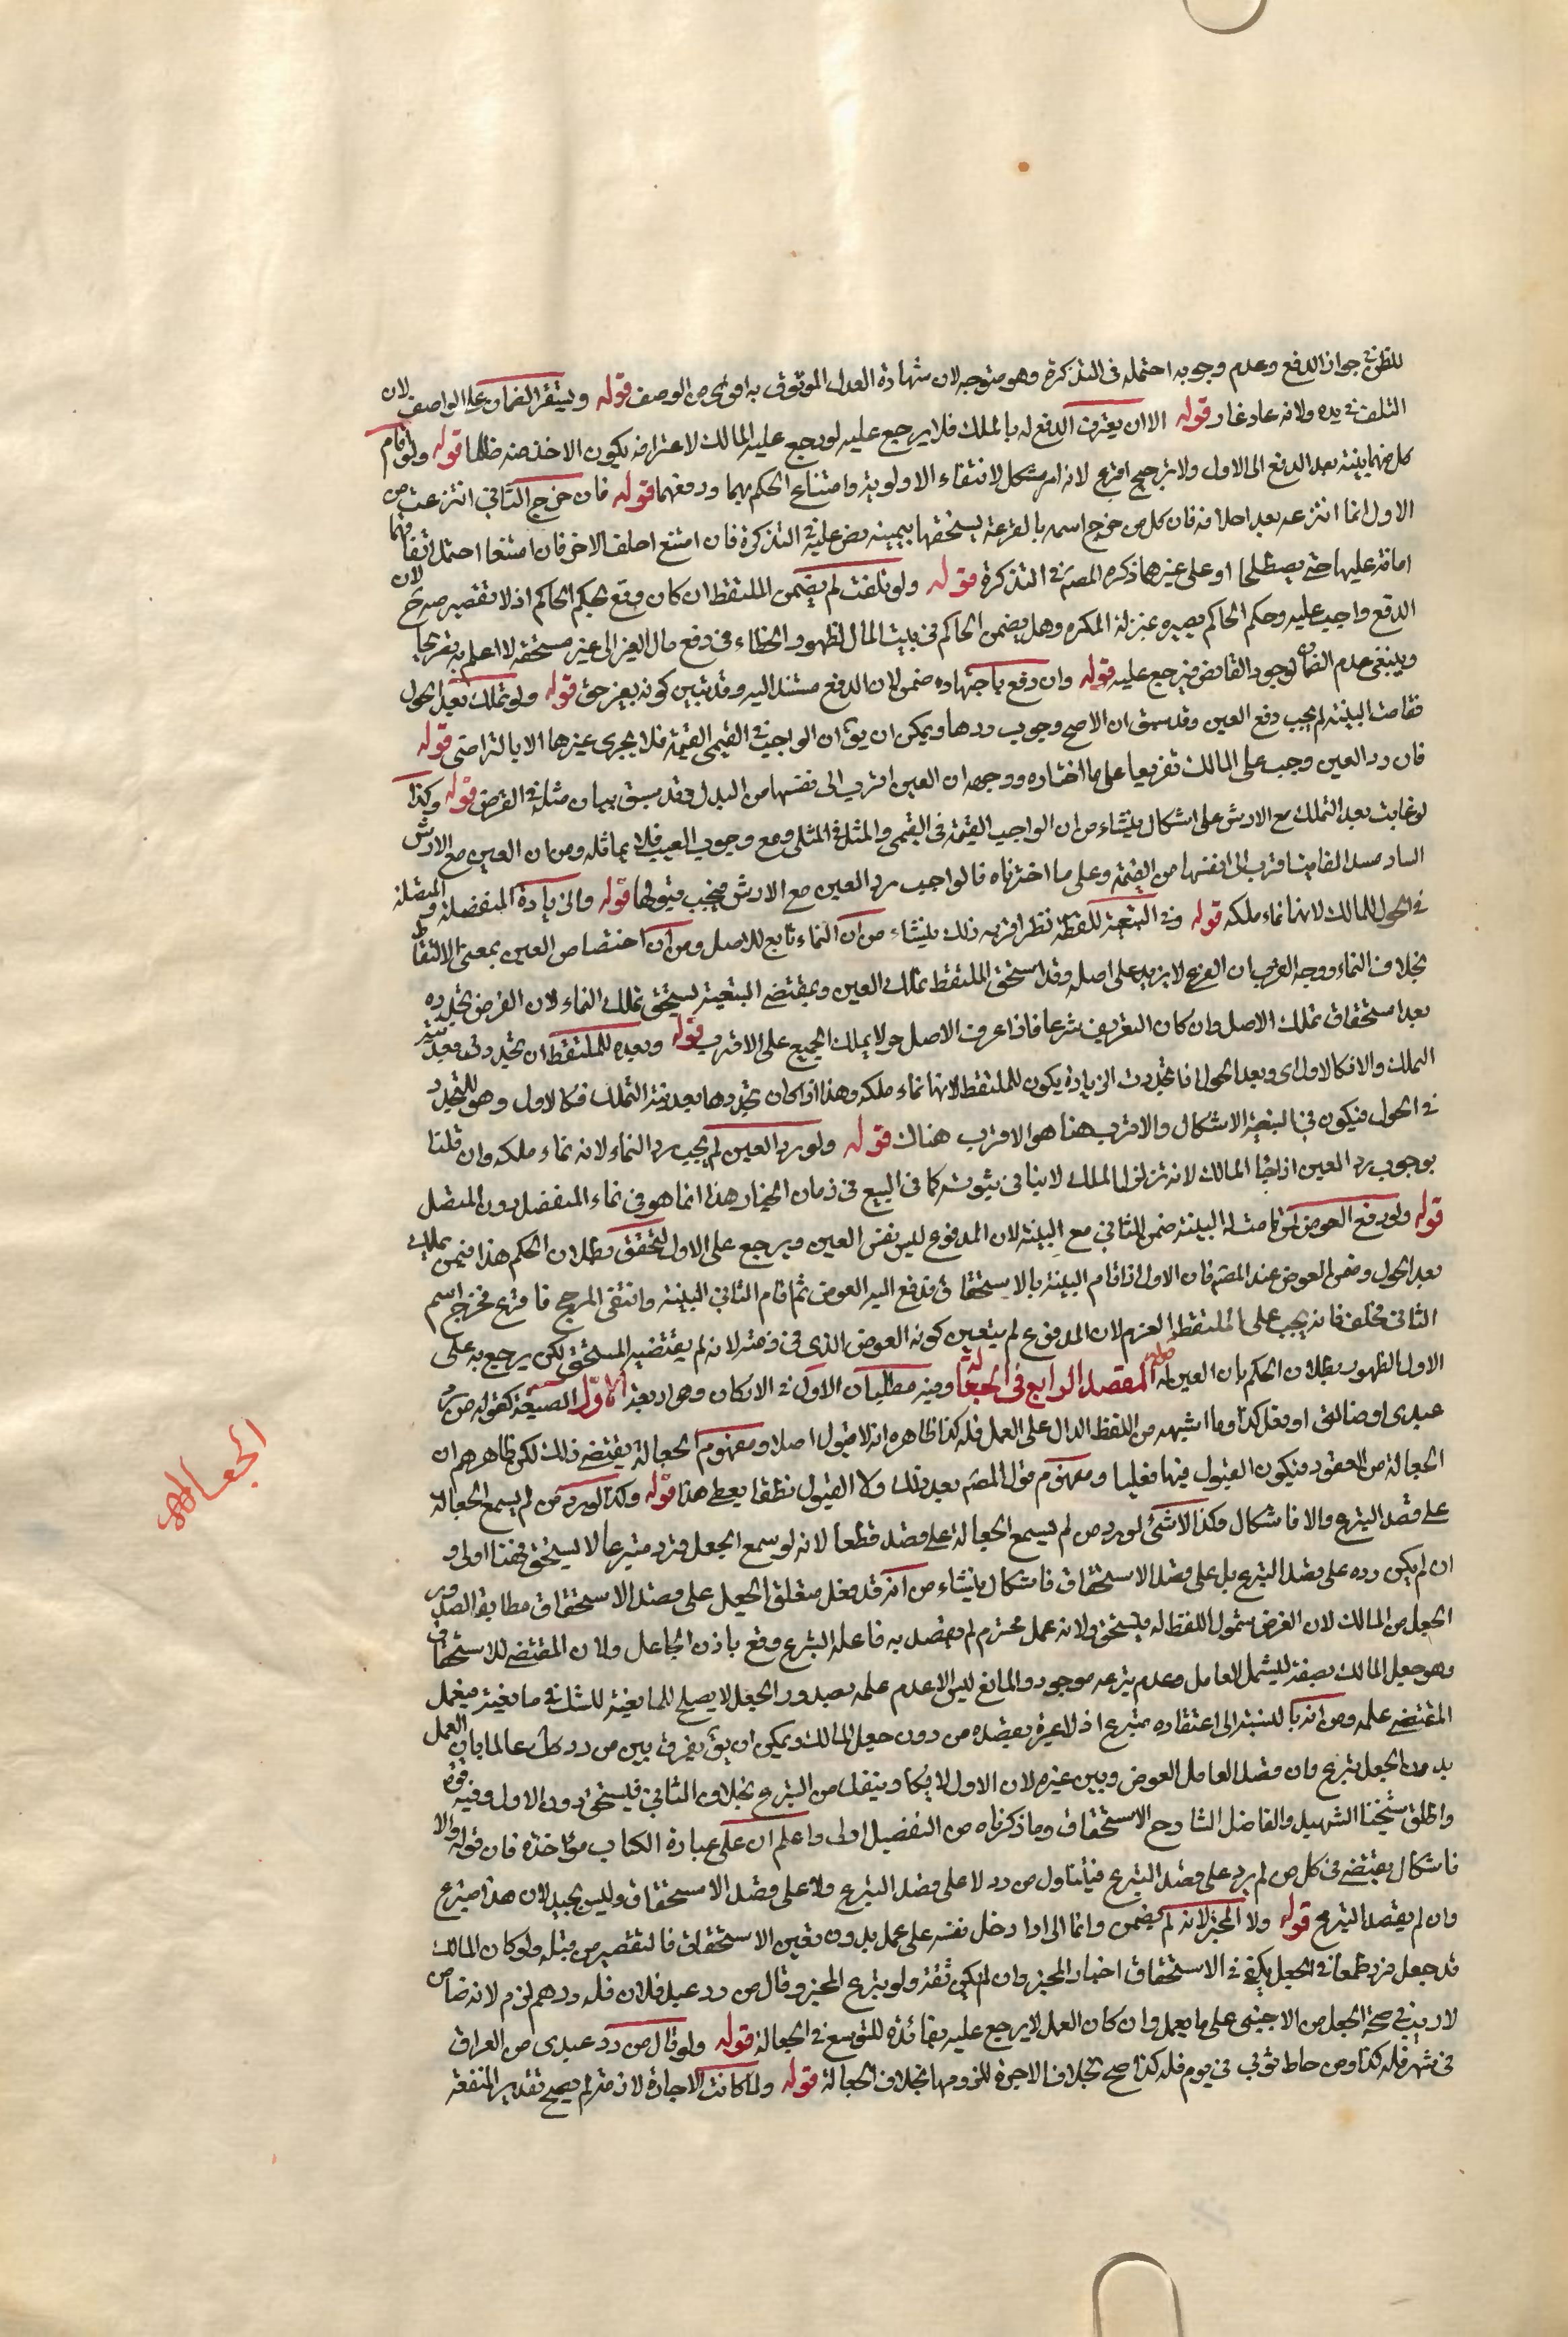 للظن في جواز الدفع وعدم وجوبه احتمله في التذكرة وهو متوجه لان شهادة العدل الموثوق به اقوى من الوصف قوله ويستقر الضمان على الواصف لان
التلف في يده ولانه عاد غار قوله الا ان يعترف الدافع له بالملك فلا يرجع عليه لو رجع عليه المالك لاعترافه بكون الاخذ منه ظالما قوله ولو اقام
كل منهما بينة بعد الدفع الى الاول ولا ترجيح اقرع لانه امر مشكل لانتفاء الاولوية وامتناع الحكم بهما ودفعهما قوله فان خرج الثاني انتزعت من
الاول انما انتزعه بعد احلافه فان كل من خرج اسمه بالقرعة يستحقها بيمينه نص عليه في التذكرة فان امتنع احلف الاخر فان امتنعا احتمل ايقافها
امانة عليها حتى يصطلحا او على غيرهما ذكره المصـ في التذكرة قوله ولو تلفت لم يضمن الملتقط ان كان وقع بحكم الحاكم اذ لا تقصير منه ح لان
الدفع واجب عليه وحكم الحاكم يصيره بمنزلة المكره وهل يضمن الحاكم في بيت المال لظهور الخطاء في دفع مال الغير الى غير مستحقه لا اعلم به تصريحا
وينبغي عدم الضمان لوجود القابض فيرجع عليه قوله وان دفع باجتهاده ضمن لان الدفع مستند اليه وقد تبين كونه بغير حق قوله ولو تملك بعد الحول
فقامت البينة لم يجب دفع العين وقد سبق ان الاصح وجوب ردها ويمكن ان يق ان الواجب في القيمي القيمة فلا يجزى غيرها الا بالتراضي قوله
فان رد العين وجب على المالك تفريعا على ما اختاره ووجهه ان العين اقرب الى نفسها من البدل وقد سبق بيان مثله في القرض قوله وكذا
لو غابت بعد التملك مع الارش على اشكال ينشاء من ان الواجب القيمة في القيمي والمثل في المثلي ومع وجوب العيب فلا يماثله ومن ان العين مع الارش
الساد مسد الفايت اقرب الى نفسها من القيمة وعلى ما اخترناه فالواجب رد العين مع الارش فيجب قبولها قوله والزيادة المنفصلة والمتصلة
في الحول للمالك لانها نماء ملكه قوله وفي التبعية للقطة نظر اقربه ذلك ينشاء من ان النماء تابع للاصل ومن ان اختصاص العين بمعنى الالتقاط
بخلاف النماء ووجه القرب ان الفرع لا يزيد على اصله وقد استحق الملتقط تملك العين وبمقتضى التبعية يستحق تملك النماء لان الفرض تجدده
بعد استحقاق تملك الاصل وان كان التعريف شرعا فاذا عرف الاصل حولا يملك الجميع على الاقرب قوله وبعده للملتقط ان تجددت بعد نية
التملك والا فكالاول اى وبعد الحول فاتجددت الزيادة يكون للملتقط لانها نماء ملكه وهذا اذا كان تجددها بعد نية التملك فكالاول وهو المتجدد
في الحول فيكون في التبعية الاشكال والاقرب هنا هو الاقرب هناك قوله ولو رد العين لم يجب رد النماء لانه نماء ملكه وان قلنا
بوجوب رد العين اذا جاء المالك لانه تزلزل الملك لا ينافي ثبوته كما في البيع في زمان الخيار هذا انما هو في نماء المنفصل دون المتصل
قوله ولو دفع العوض لمن قامت له البينة ضمن للثاني مع البينة لان المدفوع ليس نفس العين ويرجع على الاول لتحقق بطلان الحكم هذا فيمن تملك
بعد الحول وضمن العوض عند المصـ فان الاول اذا اقام البينة بالاستحقاق فدفع اليه العوض ثم اقام الثاني البينة وانتفى المرجح فاقرع فخرج اسم
الثاني فحلف فانه يجب على الملتقط الغرم لان المدفوع لم يتعين كونه العوض الذى في ذمته لانه لم يقتضيه المستحق لكن يرجع به على
الاول لظهور بطلان الحكم بان العين له قوله المقصد الرابع في الجعالة وفيه مطلبان الاول في الاركان وهى اربعة الاول الصيغة كقوله من رد
عبدى او ضالتي او فعل كذا وما اشبهه من اللفظ الدال على العمل فله كذا ظاهره انه لا قبول اصلا ومفهوم الجعالة يقتضى ذلك لكن ظاهرهم ان
الجعالة من العقود فيكون القبول فيها فعليا ومفهوم قول المصـ بعد ذلك ولا القبول نطقا يعطى هذا قوله وكذا لو رد من لم يسمع الجعالة
على قصد التبرع والا فاشكال وكذا لا شئ لو رد من لم يسمع الجعالة على قصد قطعا لانه لو سمع الجعل ورد متبرعا لا يستحق فهنا اولى و
ان لم يكن رده على قصد التبرع بل على قصد الاستحقاق فاشكال ينشاء من انه قد فعل متعلق الجعل على قصد الاستحقاق مطابقا لصدور
الجعل من المالك لان الغرض شمول اللفظ له فيستحق ولانه عمل محترم لم يقصد به فاعله التبرع وقع باذن الجاعل ولان المقتضى للاستحقاق
وهو جعل المالك بصيغة ليشمل العامل وعدم تبرعه موجود والمانع ليس الا عدم علمه بصدور الجعل لا يصلح للمانعية للشك في مانعيته فيعمل
المقتضى عمله ومن انه بالنسبة الى اعتقاده متبرع اذ لا عبرة بقصده من دون جعل المالك ويمكن ان يق يفرق بين من رد عالما بان العمل
بدون الجعل تبرع وان قصد العامل العوض وبين غيره لان الاول لا يكاد ينفك من التبرع بخلاف الثاني فيستحق دون الاول وفيه قوة
واطلق شيخنا الشهيد والفاضل الشارح الاستحقاق وما ذكرناه من التفصيل اولى واعلم ان على عبارة الكتاب مؤاخذة فان قوله والا
فاشكال يقتضى في كل من لم يرد على قصد التبرع فيتناول من رد لا على قصد التبرع ولا على قصد الاستحقاق وليس بجيد لان هذا متبرع
وان لم يقصد التبرع قوله ولا المخبر لانه لم يضمن وانما الراد ادخل نفسه على عمل بدون تعين الاستحقاق فالتقصير من قبله ولو كان المالك
قد جعل فرد طمعا في الجعل يكفى في الاستحقاق اخبار المخبر وان لم يكن ثقة ولو تبرع المخبر وقال من رد عبد فلان فله درهم لزم لانه ضامن
لا ريب في صحة الجعل من الاجنبي على ما يعمل وان كان العمل لا يرجع عليه بفائدة للتوسع في الجعالة قوله ولو قال من رد عبدى من العراق
في شهر فله كذا ومن خاط ثوبي في يوم فله كذا صح بخلاف الاجرة للزومها بخلاف الجعالة قوله ولما كانت الاجارة لازمة لم يصح تقدير المنفعة
الجعالة